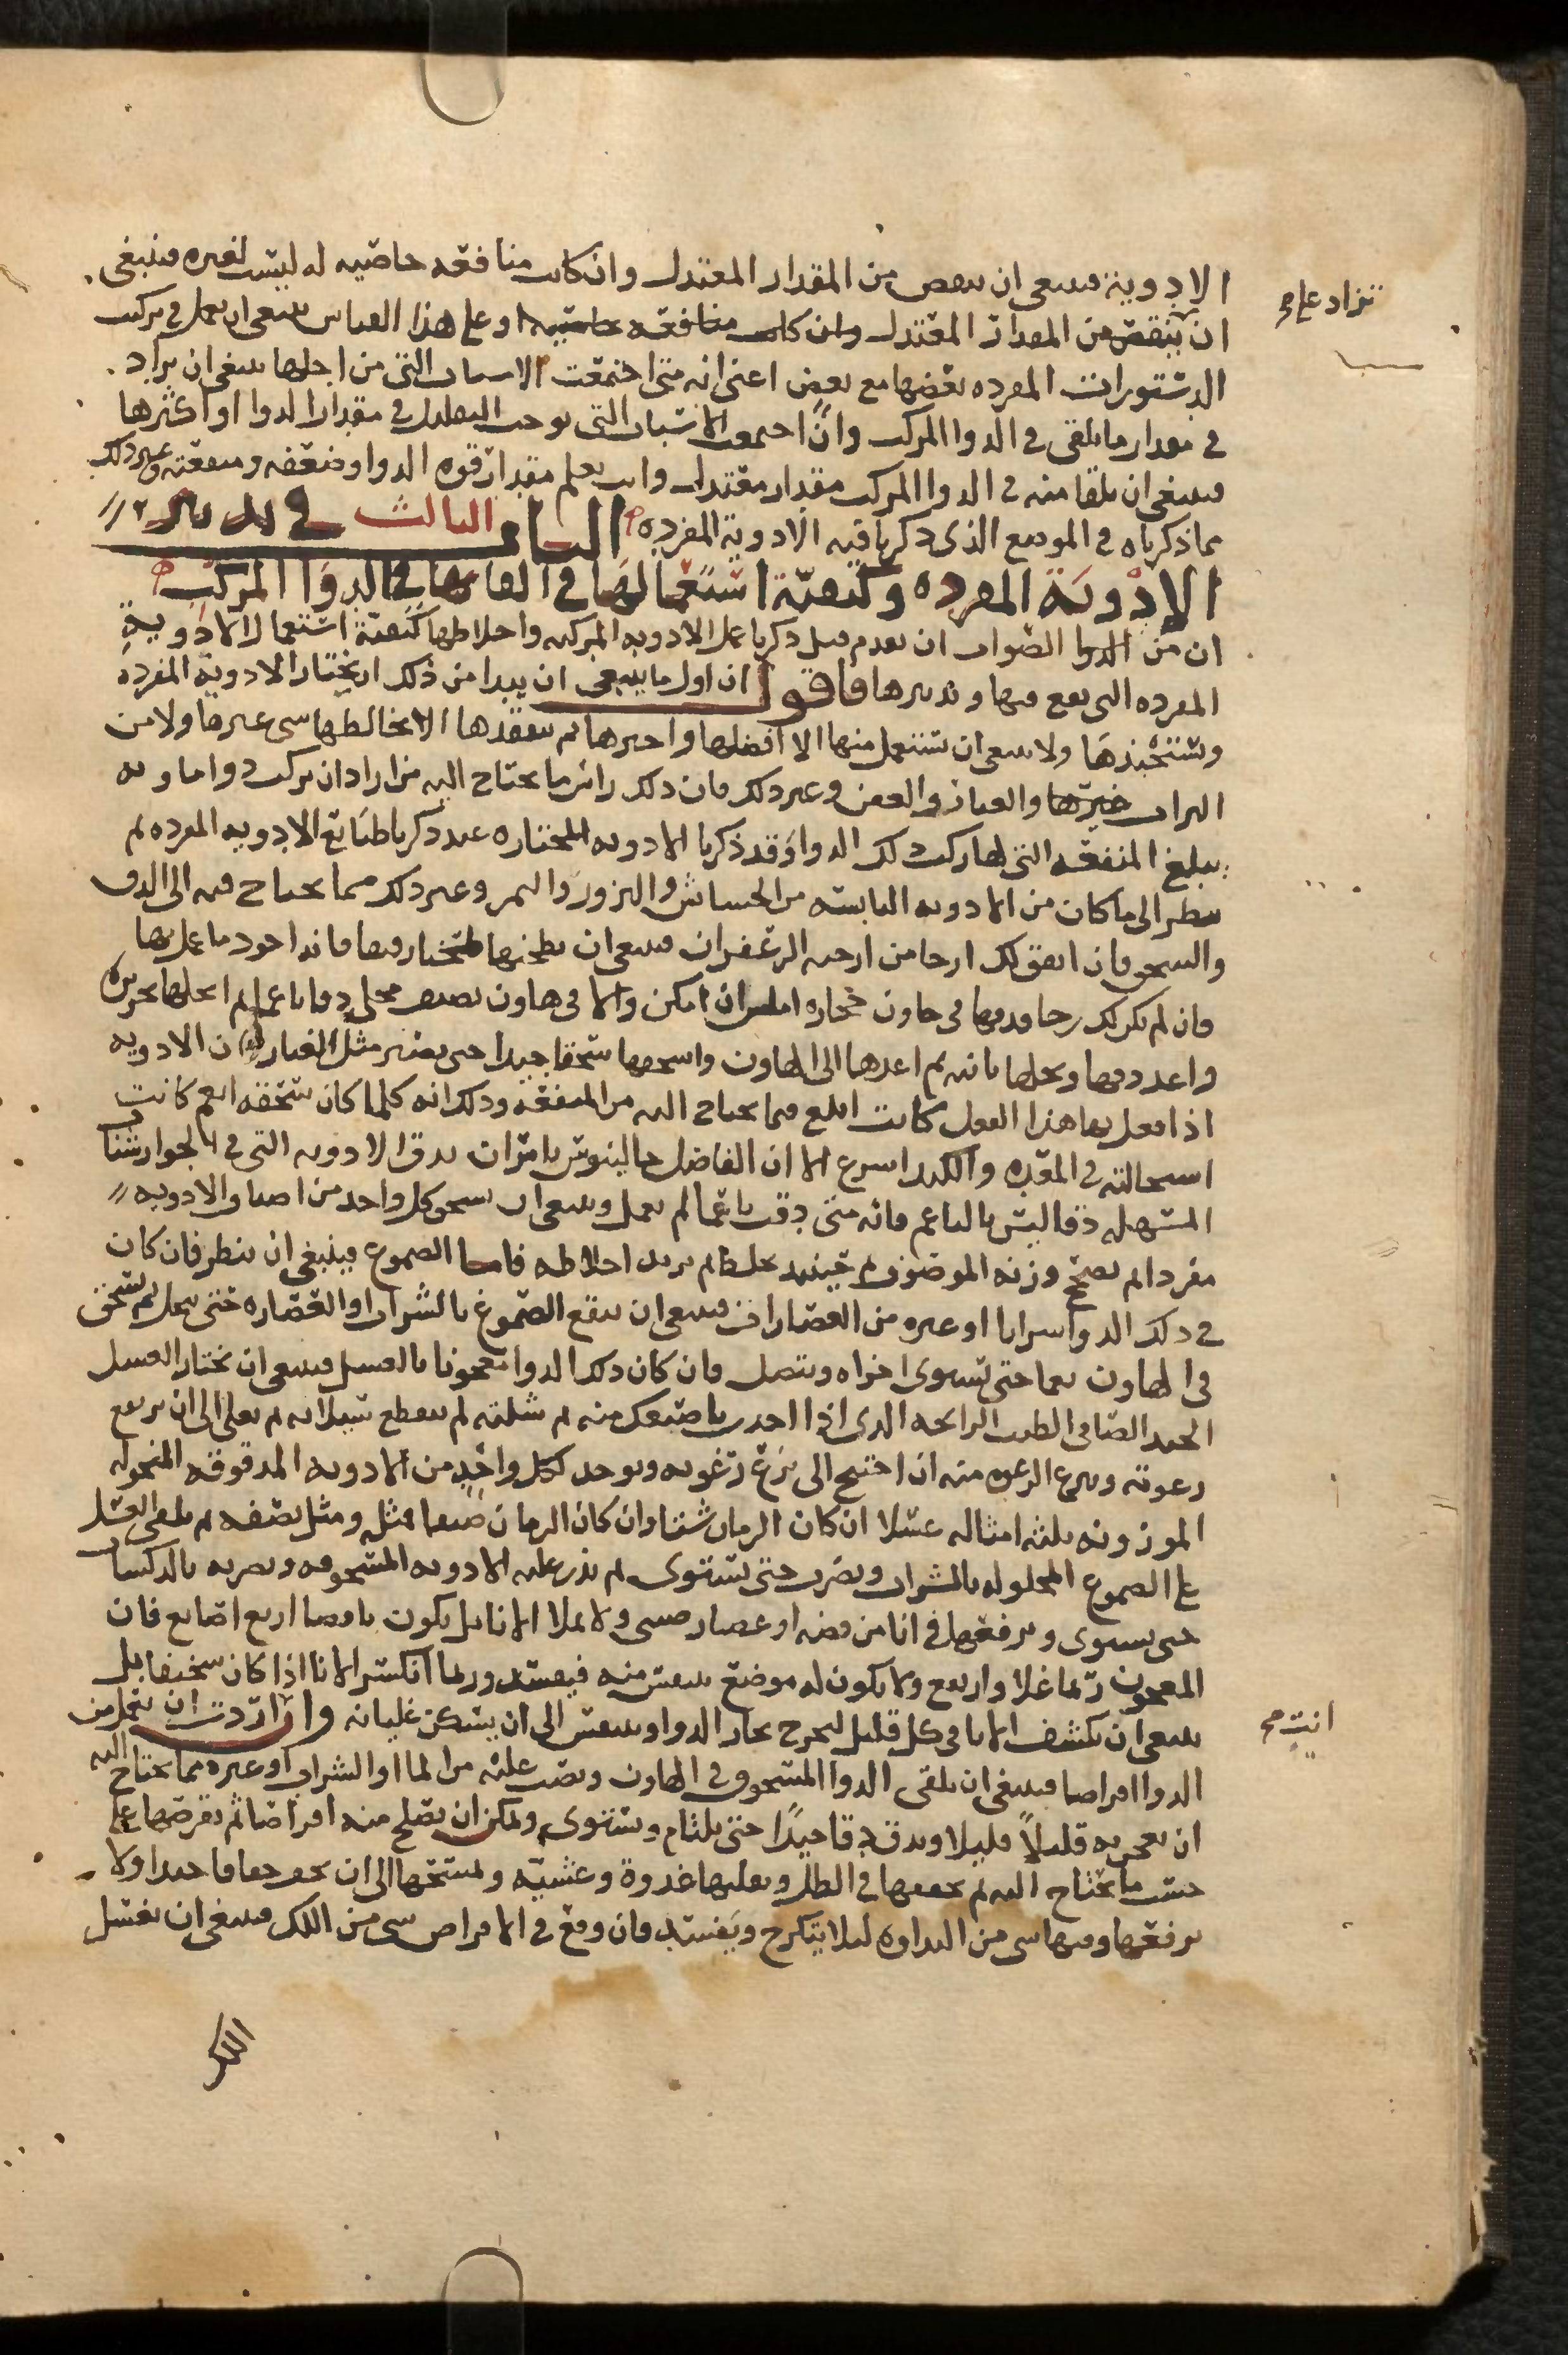 الادوية فينبغي ان ينقص من المقدار المعتدل وان كانت منافعه خاصيه له ليست لغيره فينبغي
تزاد على
ان ينقص من المقدار المعتدل وان كانت منافعه خاصيه او على هذا القياس ينبغي ان يعمل في تركيب
الدستورات المفرده بعضها مع بعض اعني انه متى اجتمعت الاسباب التي من اجلها ينبغي ان يزاد
في مقدار ما يلقى في الدوا المركب وان اجتمعت الاسباب التي توجب التقليل في مقدار الدوا او اكثرها
فينبغي ان يلقا منه في الدوا المركب مقدار معتدل وانت تعلم مقدار قوه الدوا وضعفه ومنفعته وغير ذلك
مما ذكرناه في الموضع الذي ذكرنا فيه الادوية المفرده الباب الثالث في تدبير
الادوية المفرده وكيفية استعمالها في القائها في الدوا المركب
ان من الدوا الصواب ان نقدم قبل ذكرنا عمل الادويه المركبه واخلاطها كيفية استعمال الادوية
المفرده التي تقع فيها وتدبيرها فاقول ان اول ما ينبغي ان يبدا من ذلك ان يختار الادوية المفرده
وتستجيدها ولا ينبغي ان تستعمل منها الا افضلها واخيرها ثم تتفقدها الا يخالطها شي غيرها ولا من
التراب خيرتها والغبار والعفن وغير ذلك فان ذلك راس ما يحتاج اليه من اراد ان يركب دوا ما وبه
يبلغ المنفعه التي لها ركب ذلك الدوا وقد ذكرنا الادويه المختاره عند ذكرنا طبائع الادويه المفرده ثم
ينظر الى ما كان من الادويه اليابسه من الحشائش والبزور والثمر وغير ذلك مما يحتاج فيه الى الدق
والسحق فان اتفق لك ارحا من ارحيه الزعفران فينبغي ان تطحنها فيها فانه اجود ما عمل بها
فان لم يكن لك رحا فدقها في هاون حجاره املس ان امكن والا في هاون نصف محلى دقا ناعما ثم انخلها بحريره
واعد دقها ونخلها ثانيه ثم اعدها الى الهاون واسحقها سحقا جيدا حتى يصير مثل الغبار فان الادويه
اذا فعل بها هذا الفعل كانت ابلغ فيما يحتاج اليه من المنفعه وذلك انه كلما كان سحقه انعم كانت
استحالته في المعده والكبد اسرع الا ان الفاضل جالينوس يامر ان يدق الادويه التي في الجوارشنات
المسهله دقا ليس بالناعم فانه متى دقت ناعما لم تعمل وينبغي ان يسحق كل واحد من اصناف الادويه
مفردا ثم يصحح وزنه الموصوف ثم حينئذ يخلط ثم يزيد اخلاطه فاما الصموغ فينبغي ان ينظر فان كان
في ذلك الدوا شرابا او غيره من العصارات فينبغي ان ينقع الصموغ بالشراب او العصاره حتى ينحل ثم يسحق
في الهاون نعما حتى تستوي اجزاه ويتصل فان كان ذلك الدوا معجونا بالعسل فينبغي ان يختار العسل
الجيد الصافي الطيب الرايحه الذي اذا اخذت باصبعك منه ثم شلته لم ينقطع سيلانه ثم يغلى الى ان يرتفع
رغوته وينزع الرغوه منه ان احتيج الى نزع رغوته ويوخذ لكل واحد من الادويه المدقوقه المنخوله
الموزونه ثلثه امثاله عسلا ان كان الزمان شتا وان كان الزمان صيفا مثله ومثل نصفه ثم يلقى العسل
على الصموغ المحلوله بالشراب ويضرب حتى يستوي ثم يذر عليه الادويه المسحوقه ويضربه بالدكستاب
حتى يستوي وترفعها في انا من فضه او غضار صيني ولا يملا الانا بل يكون ناقصا اربع اصابع فان
المعجون ربما غلا وارتفع ولا يكون له موضع يتنفس منه فيفسد وربما انكسر الانا اذا كان سخيفا بل
ينبغي ان يكشف الانا في كل قليل ليخرج بخار الدوا ويتنفس الى ان يسكن غليانه وان اردت ان تعمل من
انت صح
الدوا اقراصا فينبغي ان يلقى الدوا المسحوق في الهاون ويصب عليه من الما او الشراب او غيره مما يحتاج اليه
ان يعجن به قليلا قليلا ويدق دقا جيدا حتى يلتام ويستوي ويمكن ان يصلح منه اقراصا ثم يقرصها على
حسب ما يحتاج اليه ثم يجففها في الظل ويقلبها غدوة وعشيه ولمسحها الى ان يجف جفافا جيدا ولا
يرفعها وفيها شي من النداوه ليلا يتكرج ويفسد فان وقع في الاقراص شي من اللك فينبغي ان يغسل
اللك